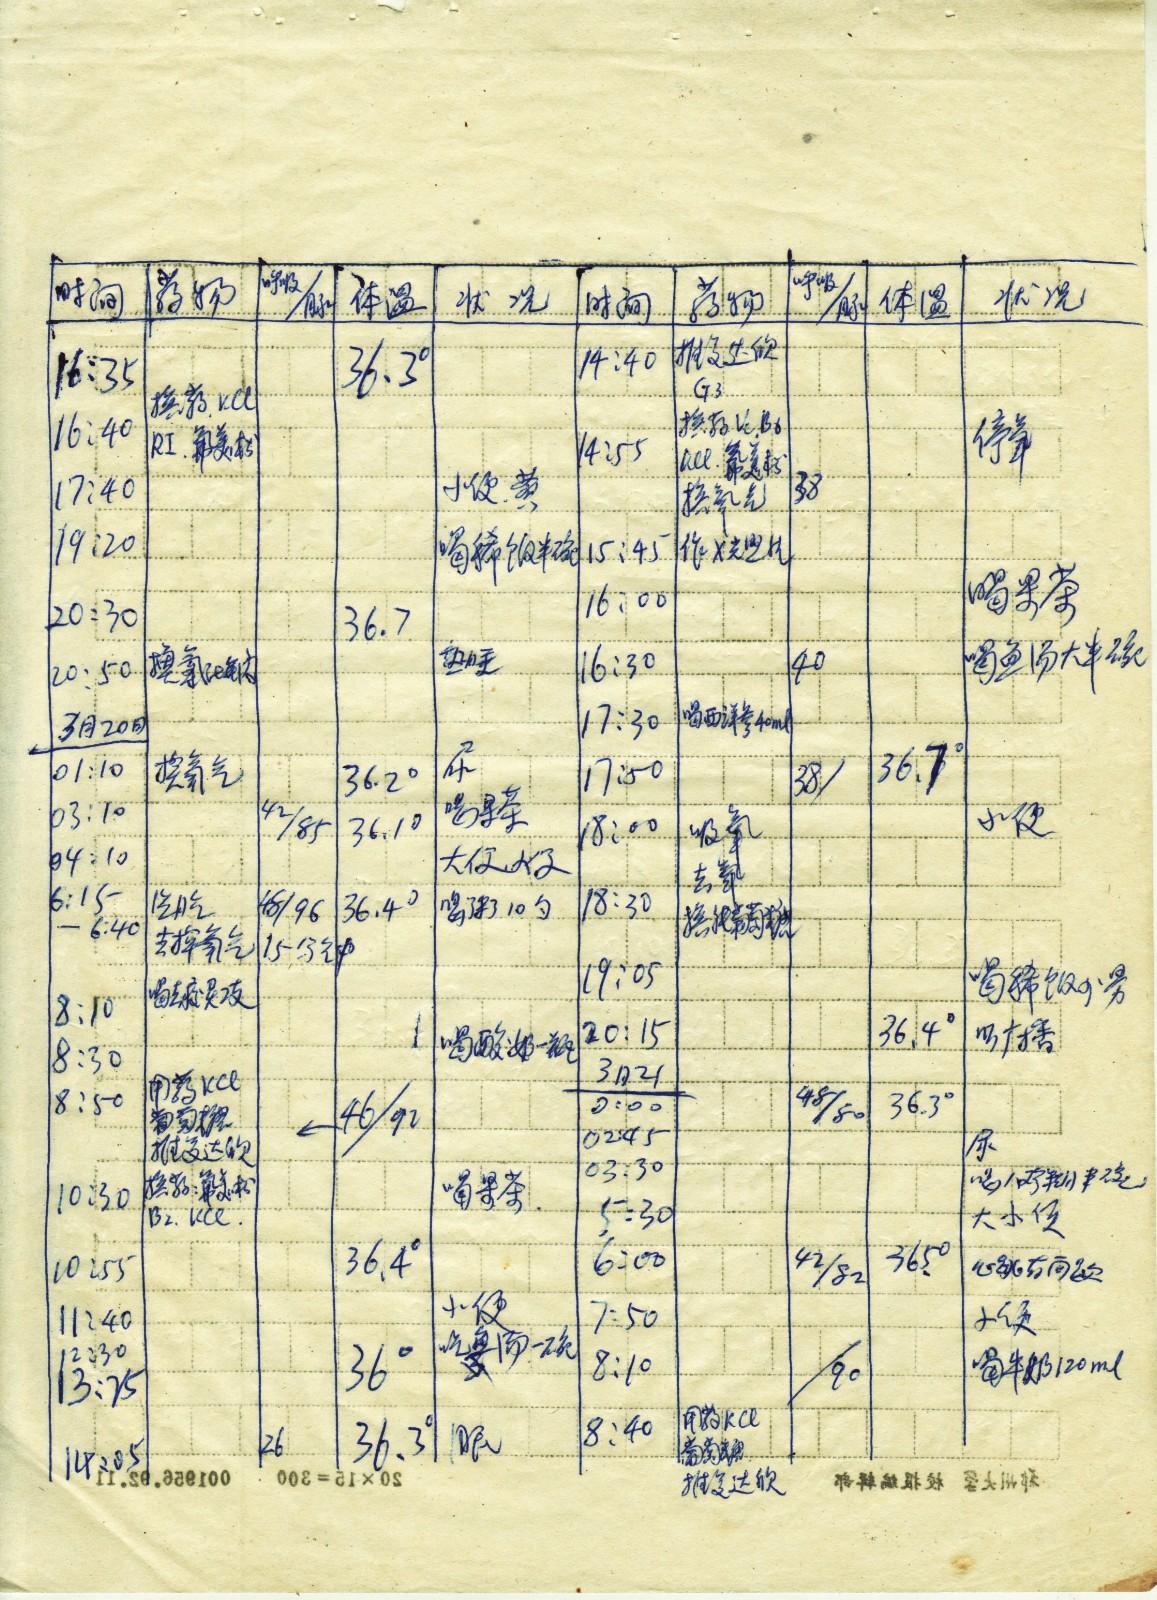 时间 药物 呼吸/脉 体温 状况
16:35 36.3°
16:40 换药.KCl
RI.氟美松
17:40 小便.黄
19:20 喝稀饭半碗
20:30 36.7
20:50 换氧 熟睡
3月20日
01:10 换氧气 36.2° 尿
03:10 42/85 36.1° 喝果茶
04:10 大便
6:15 46/96 36.4° 喝粥10勺
—6:40 去掉氧气 15-
8:10 喝
8:30 喝酸奶一瓶
8:50 用药KCl 46/92
葡萄糖
推复达欣
10:30 换药:氟美松 喝果茶.
B2.KCl.
10:55 36.4°
11:40 小便
12:30 吃鱼汤一碗
13:25 36°
14:05 26 36.3° 眠
时间 药物 呼吸/脉 体温 状况
14:40 推复达欣
G3
14:55 换药Vc.B6 停氧
KCl.氟美松
换氧气 38
15:45 作X光照片
16:00 喝果茶
16:30 40 喝鱼汤大半碗
17:30 喝西洋参40ml
17:50 38/ 36.7°
18:00 吸氧 小便
去氧
18:30 换代葡萄糖
19:05 喝稀饭
20:15 36.4°
3月21
0:00 48/80 36.3°
02:45 尿
03:30 喝 半碗
5:30 大小便
6:00 42/82 36.5° 心跳有间歇
7:50 小便
8:10 /90 喝牛奶120ml
8:40 用药KCl
葡萄糖
推复达欣
001956.92.11 20×15=300 郑州大学 校报编辑部